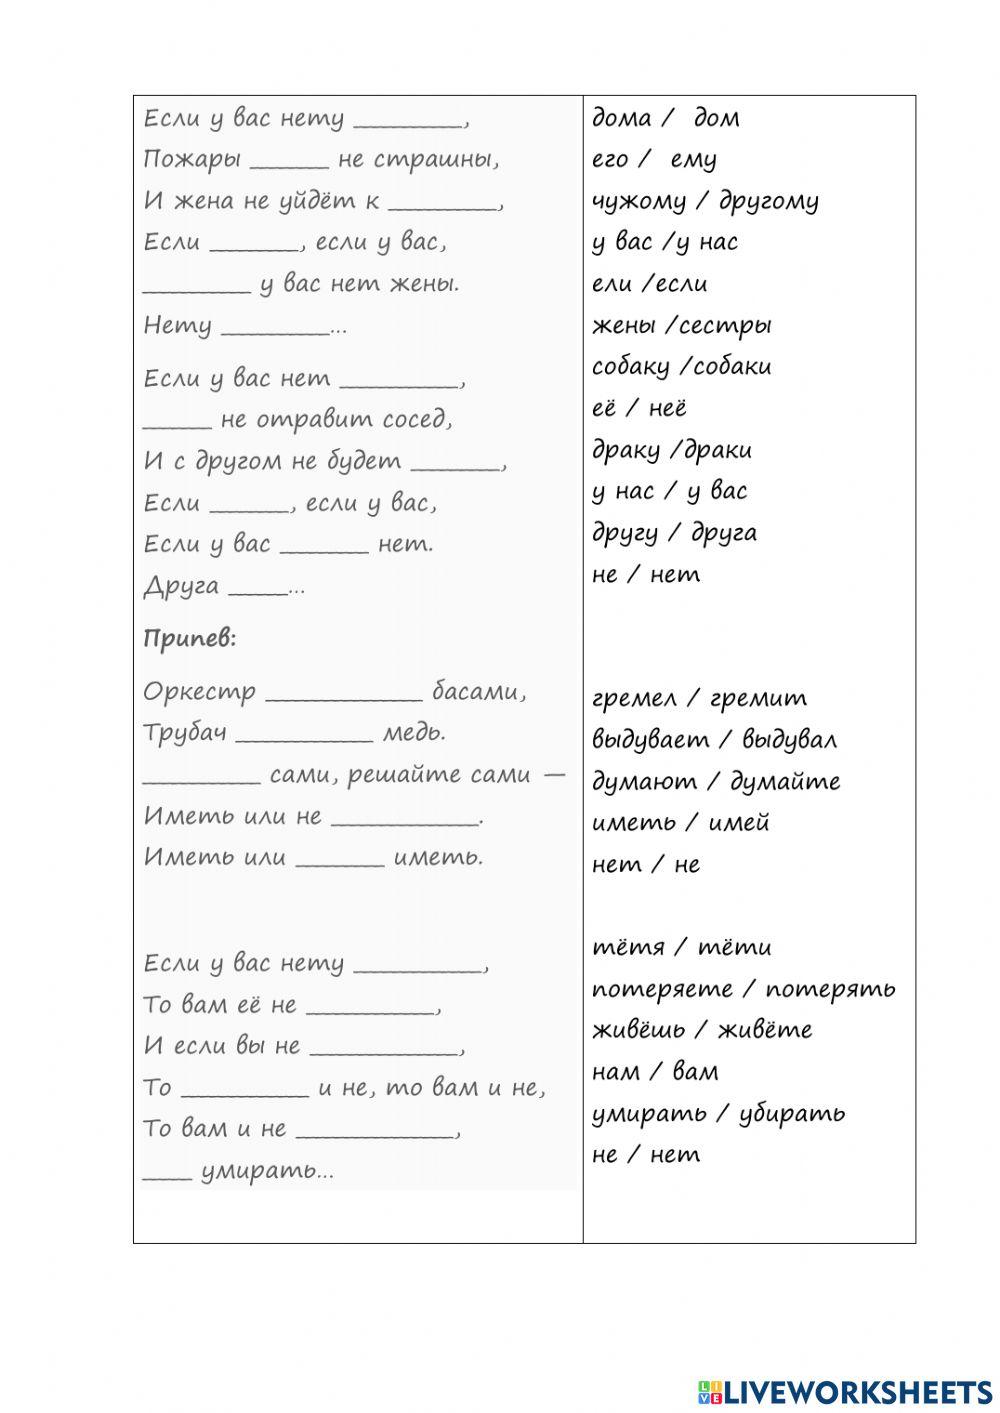 Если у вас нету __________,
Пожары _______ не страшны,
И жена не уйдёт к __________,
Если ________, если у вас,
__________ у вас нет жены.
Нету __________...
Если у вас нет ___________,
______ не отравит сосед,
И с другом не будет ________,
Если _______, если у вас,
Если у вас ________ нет.
Друга _____...
Припев:
Оркестр ______________ басами,
Трубач ____________ медь.
___________ сами, решайте сами —
Иметь или не _____________.
Иметь или ________ иметь.
Если у вас нету ___________,
То вам её не ___________,
И если вы не _____________,
То ___________ и не, то вам и не,
То вам и не ______________,
____ умирать...
дома / дом
его / ему
чужому / другому
у вас /у нас
ели /если
жены /сестры
собаку /собаки
её / неё
драку /драки
у нас / у вас
другу / друга
не / нет
гремел / гремит
выдувает / выдувал
думают / думайте
иметь / имей
нет / не
тётя / тёти
потеряете / потерять
живёшь / живёте
нам / вам
умирать / убирать
не / нет
LIVE LIVEWORKSHEETS